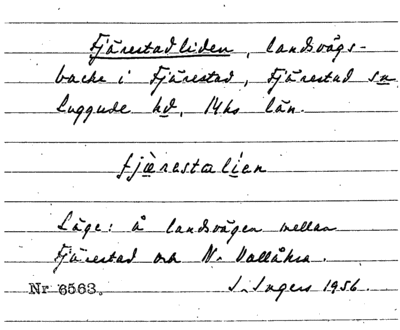 Fjärestadliden, landsvägs-
backe i Fjärestad, Fjärestad sn
Luggude hd, Mhs län.
fjæ̀restalien
Läge: å landsvägen mellan
Fjärestad och N. Vallåkra.
Nr 6563. J. Ingers 1956.